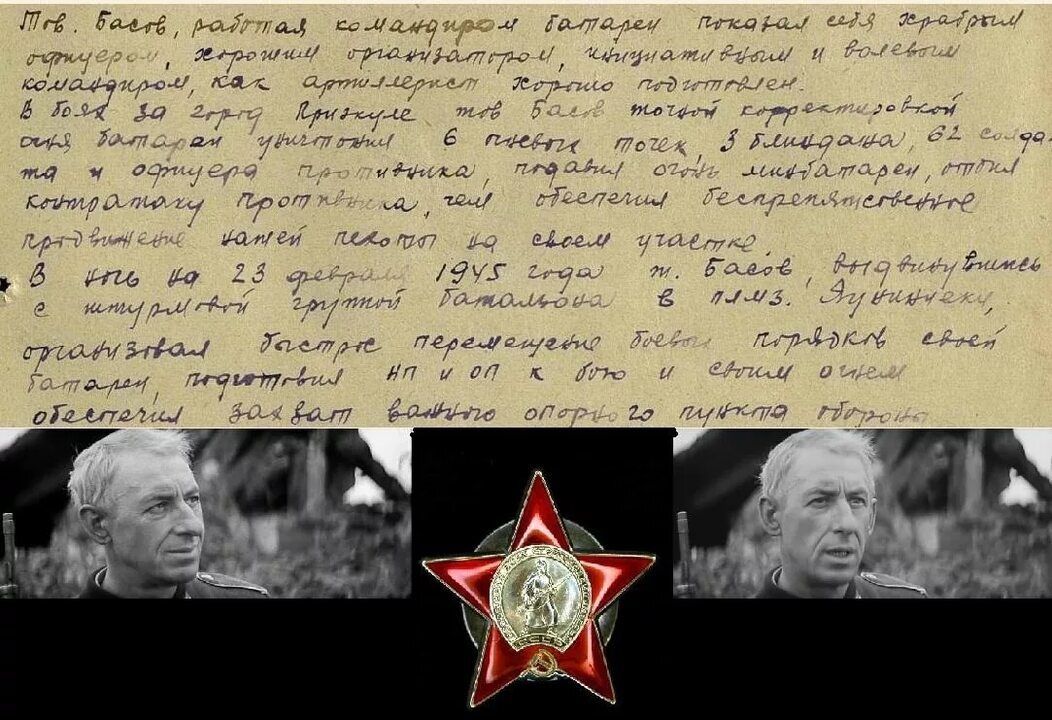 Тов. Басов, работая командиром батареи показал себя храбрым
офицером, хорошим организатором, инициативным и волевым
командиром, как артиллерист хорошо подготовлен.
В боях за город Приэкуле тов Басов точной корректировкой
огня батареи уничтожил 6 огневых точек, 3 блиндажа, 62 солда-
та и офицера противника, подавил огонь минбатареи, отбил
контратаку противника, чем обеспечил беспрепятственное
продвижение нашей пехоты на своем участке.
В ночь на 23 февраля 1945 года т. Басов, выдвинувшись
с штурмовой группой батальона в
организовал быстрое перемещение боевых порядков своей
батареи, подготовил НП и ОП к бою и своим огнем
обеспечил захват важного опорного пункта обороны
СССР